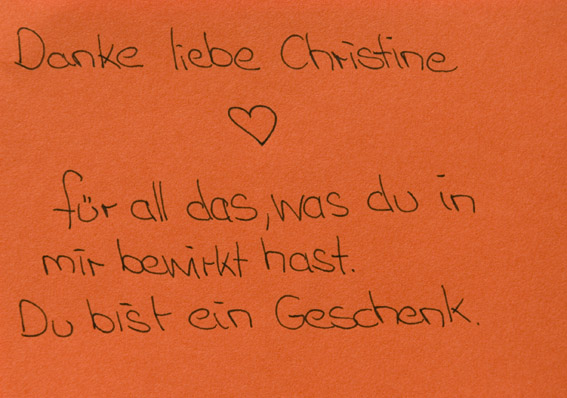 Danke liebe Christine
♡
für all das, was du in
mir bewirkt hast.
Du bist ein Geschenk.